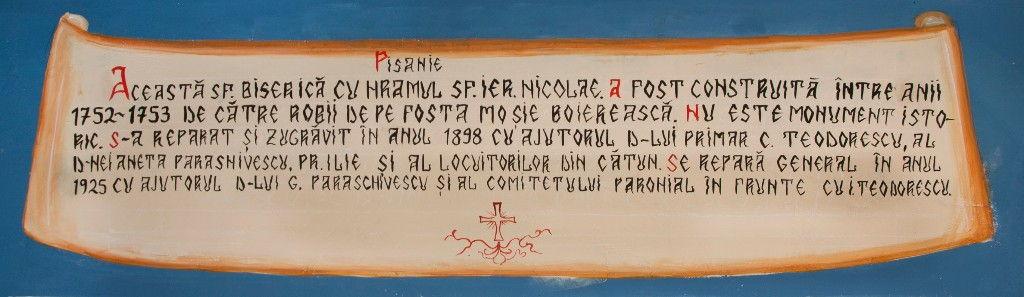 Pisanie
Această Sf. Biserică cu hramul Sf. Ier. Nicolae. a fost construită între anii
1752-1753 de către robii de pe fosta moșie boierească. Nu este monument isto-
ric. S-a reparat și zugrăvit în anul 1898 cu ajutorul d-lui primar C. Teodorescu, al
d-nei Aneta Parashivescu, Pr. Ilie și al locuitorilor din cătun. Se repară general în anul
1925 cu ajutorul d-lui G. Paraschivescu și al comitetului parohial în frunte cu I Teodorescu.